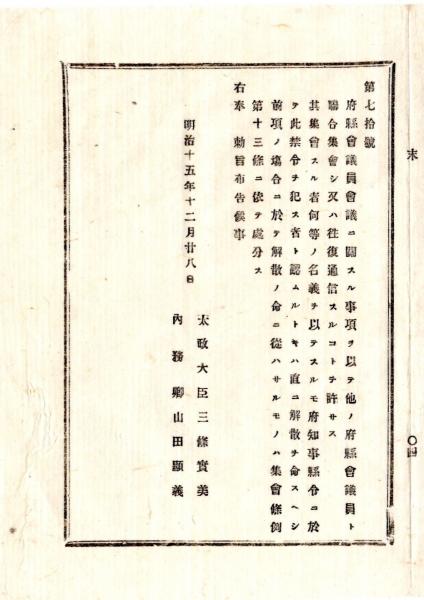 第七拾號
府縣會議員會議ニ關スル事項ヲ以テ他ノ府縣會議員ト
聯合集會シ又ハ往復通信スルコトヲ許サス
其集會スル者何等ノ名義ヲ以テスルモ府知事縣令ニ於
テ此禁令ヲ犯ス者ト認ムルトキハ直ニ解散ヲ命スヘシ
前項ノ塲合ニ於テ解散ノ命ニ從ハサルモノハ集會條例
第十三條ニ依テ處分ス
右奉 勅旨布告候事
明治十五年十二月廿八日
太政大臣三條實美
內務卿山田顯義
末
〇四